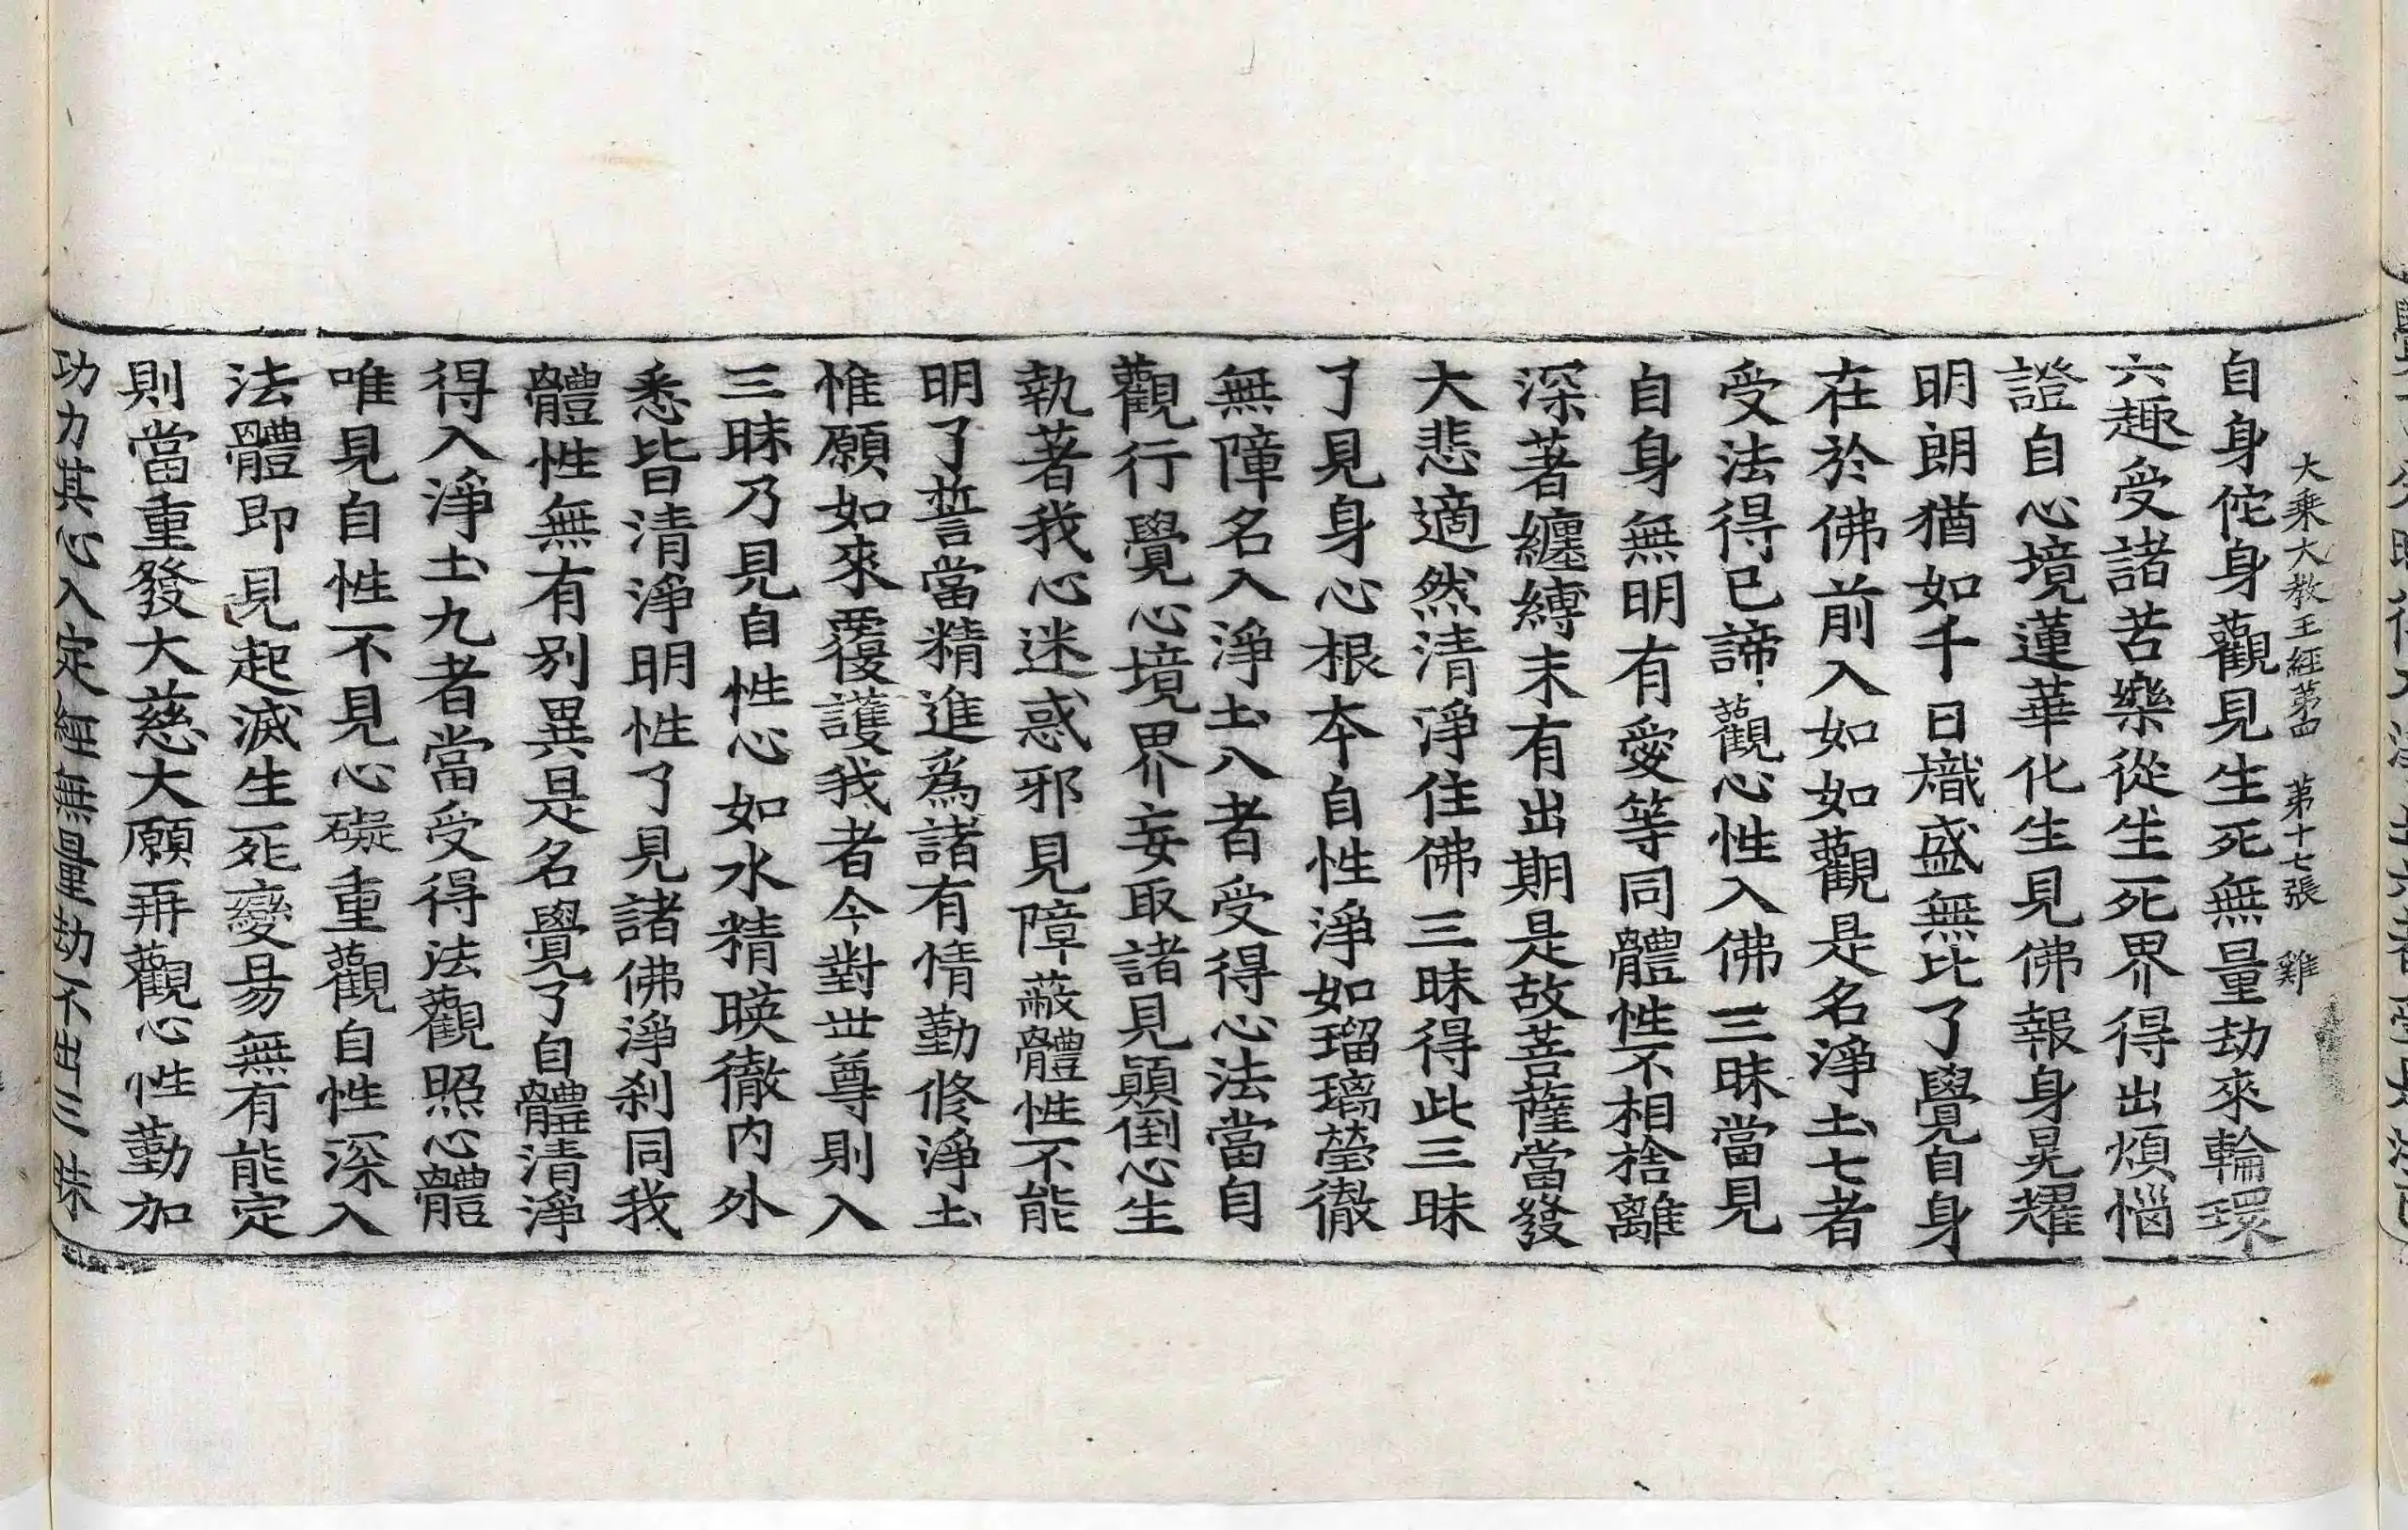 大乘大教王經第四　第十七張　雞
自身佗身觀見生死無量劫來輪環
六趣受諸苦樂從生死界得出煩惱
證自心境蓮華化生見佛報身晃耀
明朗猶如千日熾盛無比了覺自身
在於佛前入如如觀是名淨土七者
受法得已諦觀心性入佛三昧當見
自身無明有愛等同體性不相捨離
深著纏縛末有出期是故菩薩當發
大悲適然清淨住佛三昧得此三昧
了見身心根本自性淨如瑠璃瑩徹
無障名入淨土八者受得心法當自
觀行覺心境界妄取諸見顚倒心生
執著我心迷惑邪見障蔽體性不能
明了誓當精進爲諸有情勤修淨土
惟願如來覆護我者今對世尊則入
三昧乃見自性心如水精暎徹內外
悉皆清淨明性了見諸佛淨刹同我
體性無有別異是名覺了自體清淨
得入淨土九者當受得法觀照心體
唯見自性不見心礙重觀自性深入
法體即見起滅生死變易無有能定
則當重發大慈大願再觀心性勤加
功力其心入定經無量劫不出三昧